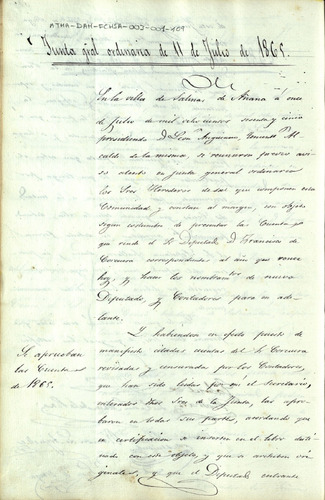 ATHA-DAH-FCHSA-002-001-109
Junta gral ordinaria de 11 de Julio de 1865.
En la villa de Salinas de Añana á once
de Julio de mil ochocientos sesenta y cinco
presidiendo D. Leon teniente Al
calde de la misma, se reunieron previo avi
so atento en junta general ordinaria
los Sres Herederos de sal que componen esta
Comunidad y constan al margen, con objeto
segun costumbre de presentar la Cuenta
que rinde el Sr Diputado D. Francisco de
Corcuera correspondiente al año que vence
hoy, y hacer los nombramtos de nuevo
Diputado, y Contadores para en ade-
lante.
Y habiendose en efecto puesto de
manifiesto citadas cuentas del Sr Corcuera
revisadas y censuradas por los Contadores,
que han sido leidas por mi el Secretario,
enterados dhos Sres de la Junta, las apro-
baron en todas sus partes, acordando que
su certificacion se inserte en el libro desti-
nado con este objeto, y que se archiven ori-
ginales, y que el Diputado entrante
Se aprueban
las Cuentas
de 1865.